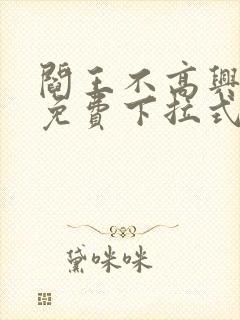 閻王不高興
免費下拉式
黛咪咪